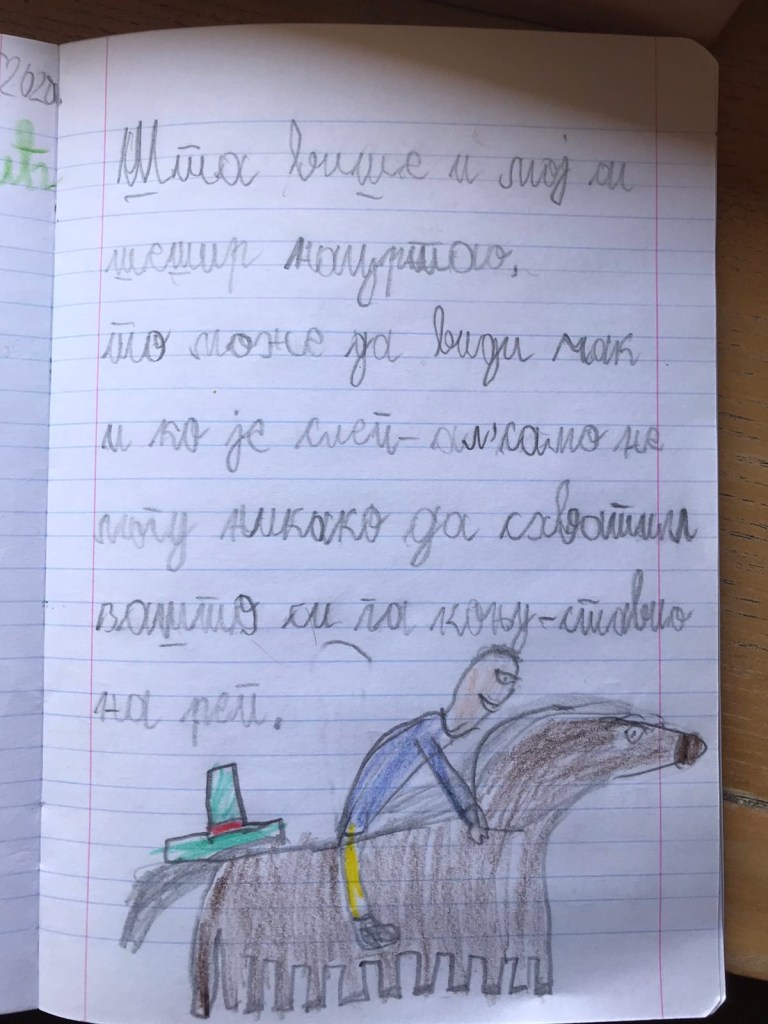 2020.
ић
Шта више и мој си
шешир нацртао,
то може да види чак
и ко је слеп - ал' само не
могу никако да схватим
зашто си га коњу - ставио
на реп.